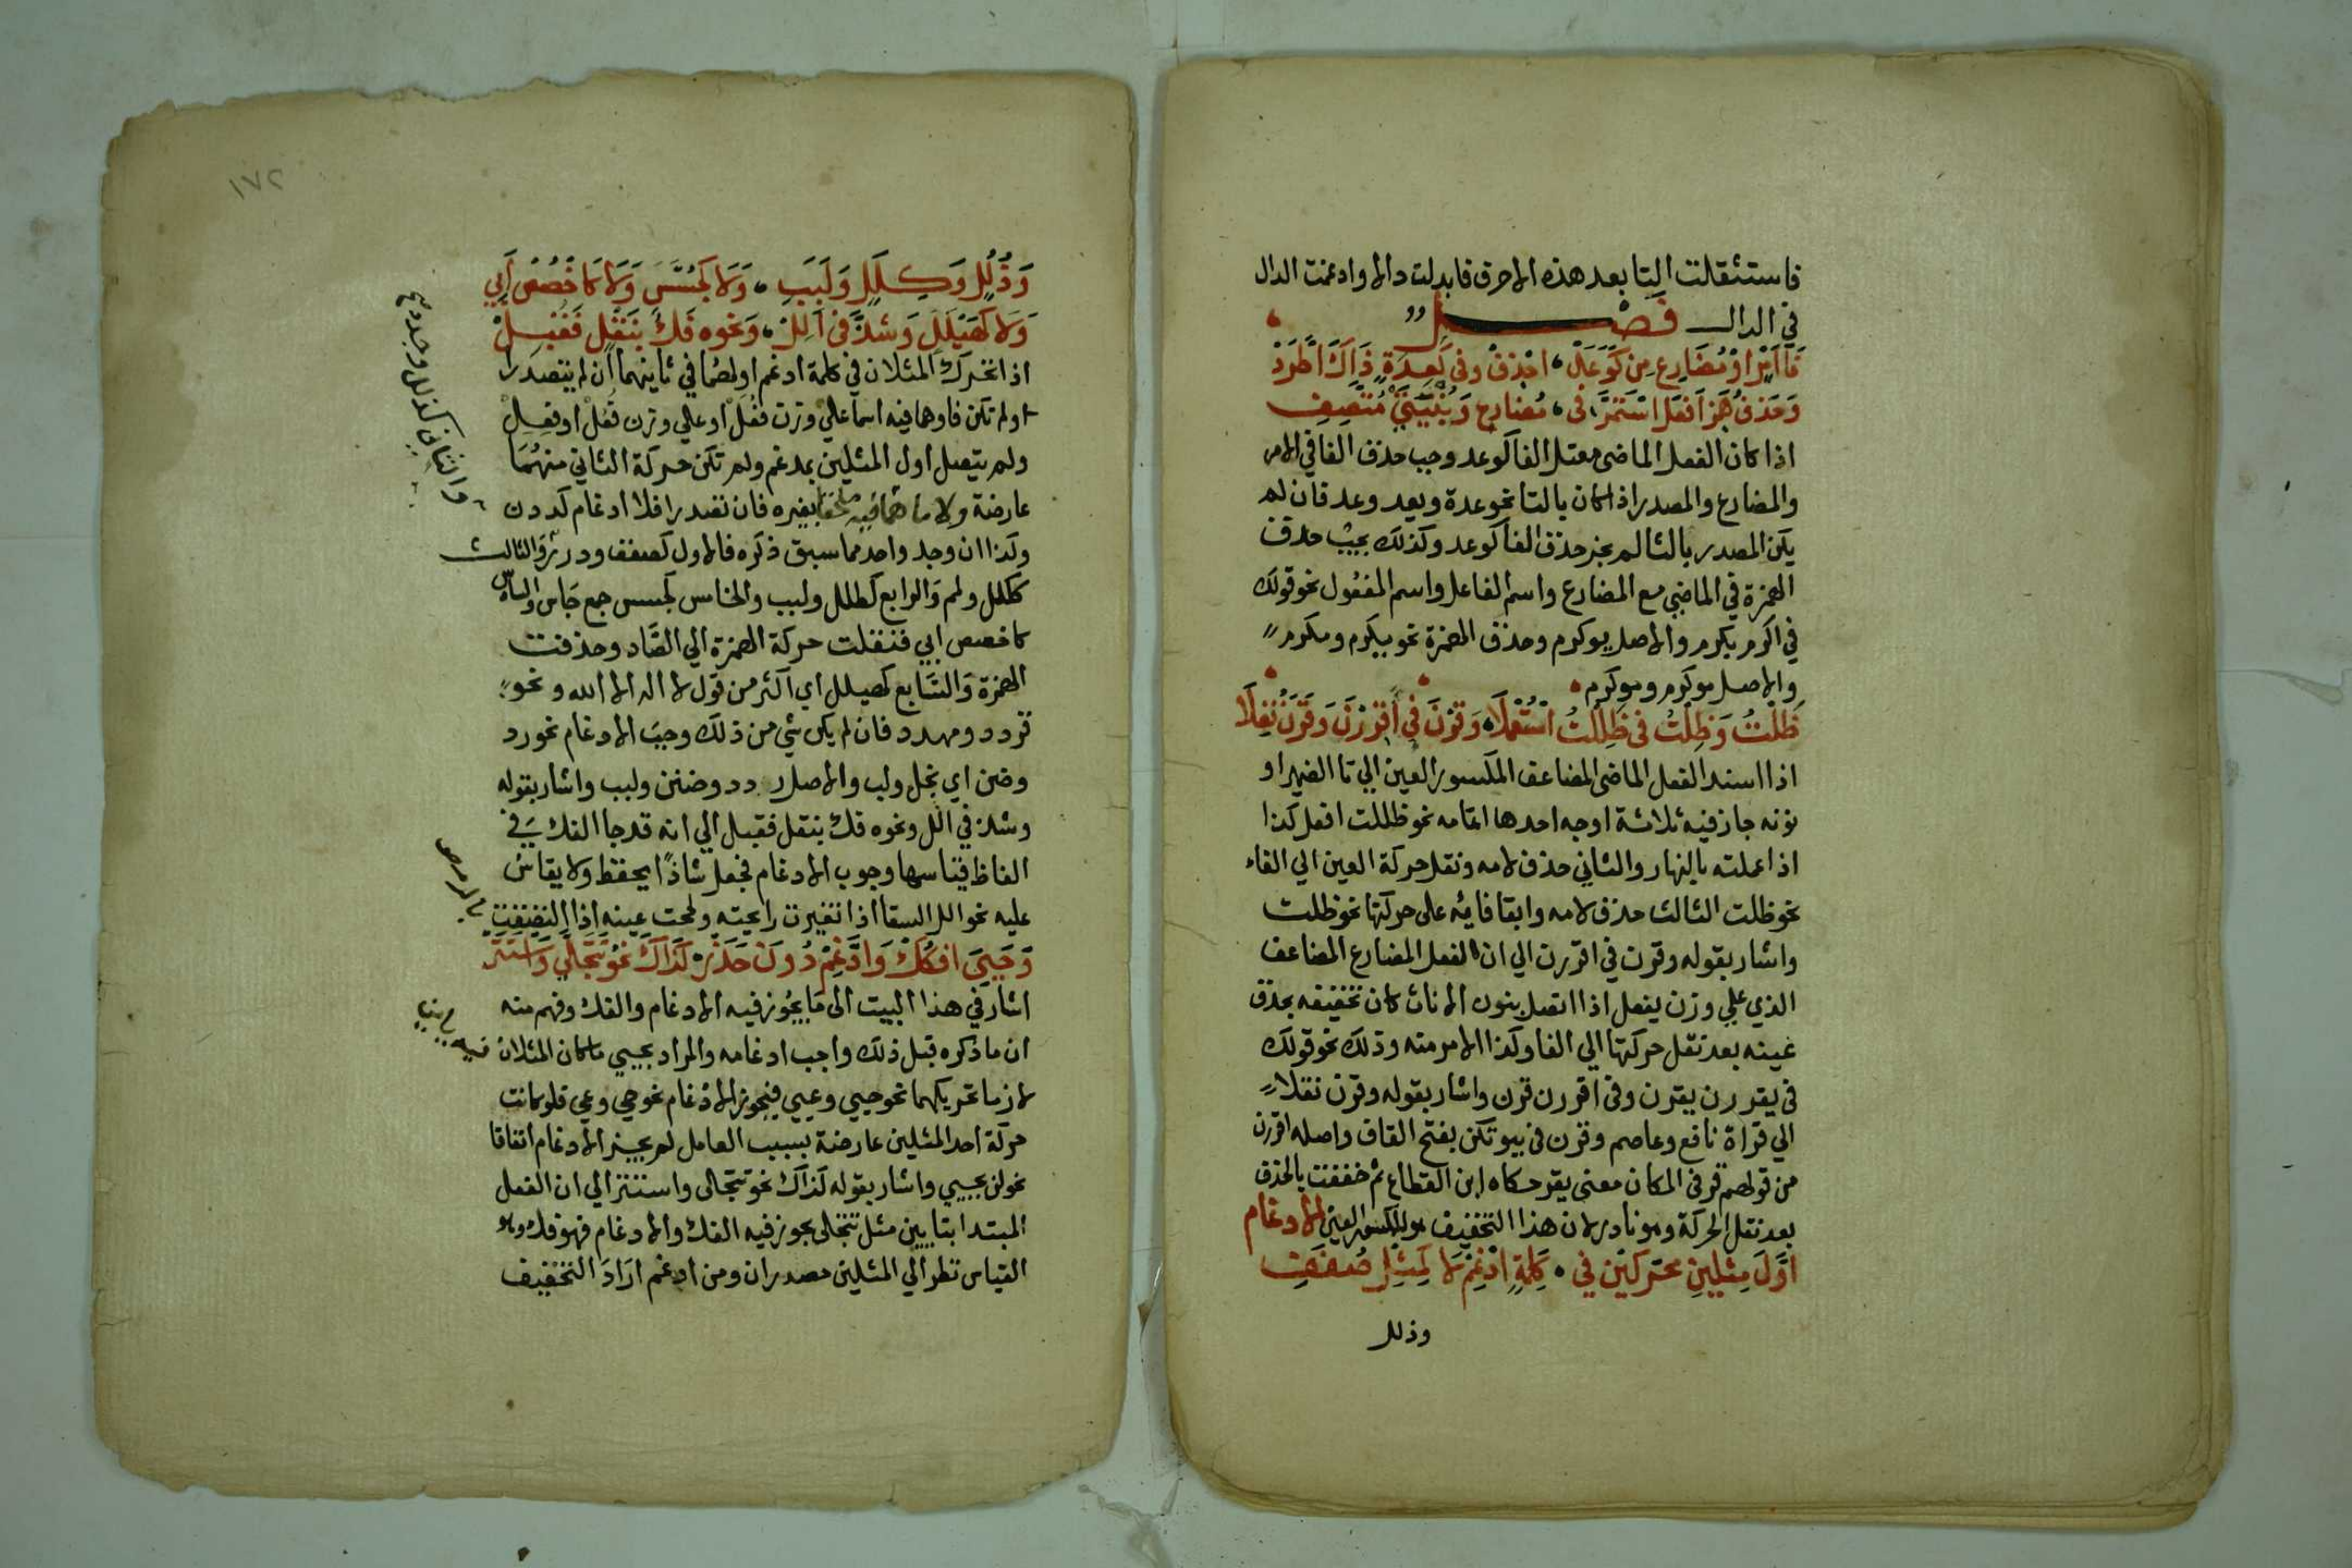 فاستثقلت التا بعد هذه الاحرف فابدلت دالا وادغمت الدال
في الدال فصل
فَا اَمْرٍ اوْ مُضَارِعٍ مِن كَوَعَدْ احْذِفْ وفى كَعِدَةٍ ذَاكَ اطَّرَدْ
وَحَذفُ هَمْزِ اَفعَلَ اسْتَمَرَّ فى مُضارعٍ وَبُنْيَتَيْ مُتَّصِفِ
اذا كان الفعل الماضى معتل الفا كوعد وجب حذف الفا في الامر
والمضارع والمصدر اذا كان بالتا نحو عدة ويعد وعد فان لم
يكن المصدر بالتا لم يجز حذف الفا كوعد وكذلك يجب حذف
الهمزة في الماضي مع المضارع واسم الفاعل واسم المفعول نحو قولك
في اكرم يكرم والاصل يوكرم وحذف الهمزة نحو يكرم ومكرم
والاصل موكرم وموكرم
ظَلْتُ وَظِلْتُ فى ظَلِلْتُ اسْتُعْمِلَا وَقِرْنَ في اقْرِرْنَ وَقَرْنَ نُقِلَا
اذا اسند الفعل الماضى المضاعف المكسور العين الي تا الضمير او
نونه جاز فيه ثلاثة اوجه احدها اتمامه نحو ظللت افعل كذا
اذا عملته بالنهار والثاني حذف لامه ونقل حركة العين الي الفاء
نحو ظلت الثالث حذف لامه وابقا فائه على حركتها نحو ظلت
واشار بقوله وقرن في اقررن الي ان الفعل المضارع المضاعف
الذي علي وزن يفعل اذا اتصل بنون الاناث كان تخفيفه بحذف
عينه بعد نقل حركتها الي الفا وكذا الامر منه وذلك نحو قولك
في يقررن يقرن وفى اقررن قرن واشار بقوله وقرن نقلا
الي قراة نافع وعاصم وقرن في بيوتكن بفتح القاف واصله اقررن
من قولهم قر فى المكان معنى يقر حكاه ابن القطاع ثم خففت بالحذف
بعد نقل الحركة وهو نادر لان هذا التخفيف هو للمكسور العين الادغام
اوَّلَ مِثلينِ محرّكين في كِلمةٍ ادْغِمْ لا كَمِثْلِ صُفَفٍ
وذلل
١٧٢
وَذُلُلٍ وَكِلَلٍ وَلَبَبِ وَلا كَجُسَّسٍ وَلا كَاخْصُصَ اَبي
وَلا كَهَيْلَلٍ وَشذَّ فى اَلِلْ وَنحوه فَكٌّ بِنَقْلٍ فَقُبِلْ
اذا تحرك المثلان في كلمة ادغم اولهما في ثانيهما ان لم يتصدرا
اولم تكن فا وهما فيه اسما علي وزن فعل او علي وزن فعل او فعل
ولم يتصل اول المثلين بمدغم ولم تكن حركة الثاني منهما
عارضة ولا ما هما فيه ملحقا بغيره فان تصدرا فلا ادغام كددن
وكذا ان وجد واحد مما سبق ذكره فالاول كصفف ودرر والثالث
ككلل ولمم والرابع كطلل ولبب والخامس كجسس جمع جاس والسادس
كاخصص ابي فنقلت حركة الهمزة الي الصاد وحذفت
الهمزة والسابع كهيلل اي اكثر من قول لا اله الا الله ونحو
قردد ومهدد فان لم يكن شي من ذلك وجب الادغام نحو رد
وضن اي بخل ولب والاصل ردد وضنن ولبب واشار بقوله
وشذ في الل ونحوه فك بنقل فقبل الي انه قد جا الفك في
الفاظ قياسها وجوب الادغام فجعل شاذا يحفظ ولا يقاس
عليه نحو الل السقا اذا تغيرت رايحته ولححت عينه اذا التصقت
وَحَيِيَ افكُكْ وَادَّغِمْ دُونَ حَذَرْ كَذَاكَ نَحْوُ تَتَجَلَّى وَاسْتَتَرْ
اشار في هذا البيت الى ما يجوز فيه الادغام والفك وفهم منه
ان ما ذكره قبل ذلك واجب ادغامه والمراد بحيي ما كان المثلان فيه
لازما تحريكهما نحو حيي وعيي فيجوز الادغام نحو حي وعي فلو كانت
حركة احد المثلين عارضة بسبب العامل لم يجز الادغام اتفاقا
نحو لن يحيي واشار بقوله كذاك نحو تتجلى واستتر الي ان الفعل
المبتدا بتايين مثل تتجلى يجوز فيه الفك والادغام فهو فك وهو
القياس نظر الي المثلين مصدران ومن ادغم اراد التخفيف
والثاني كذلل وجدد جمع
بالرمص